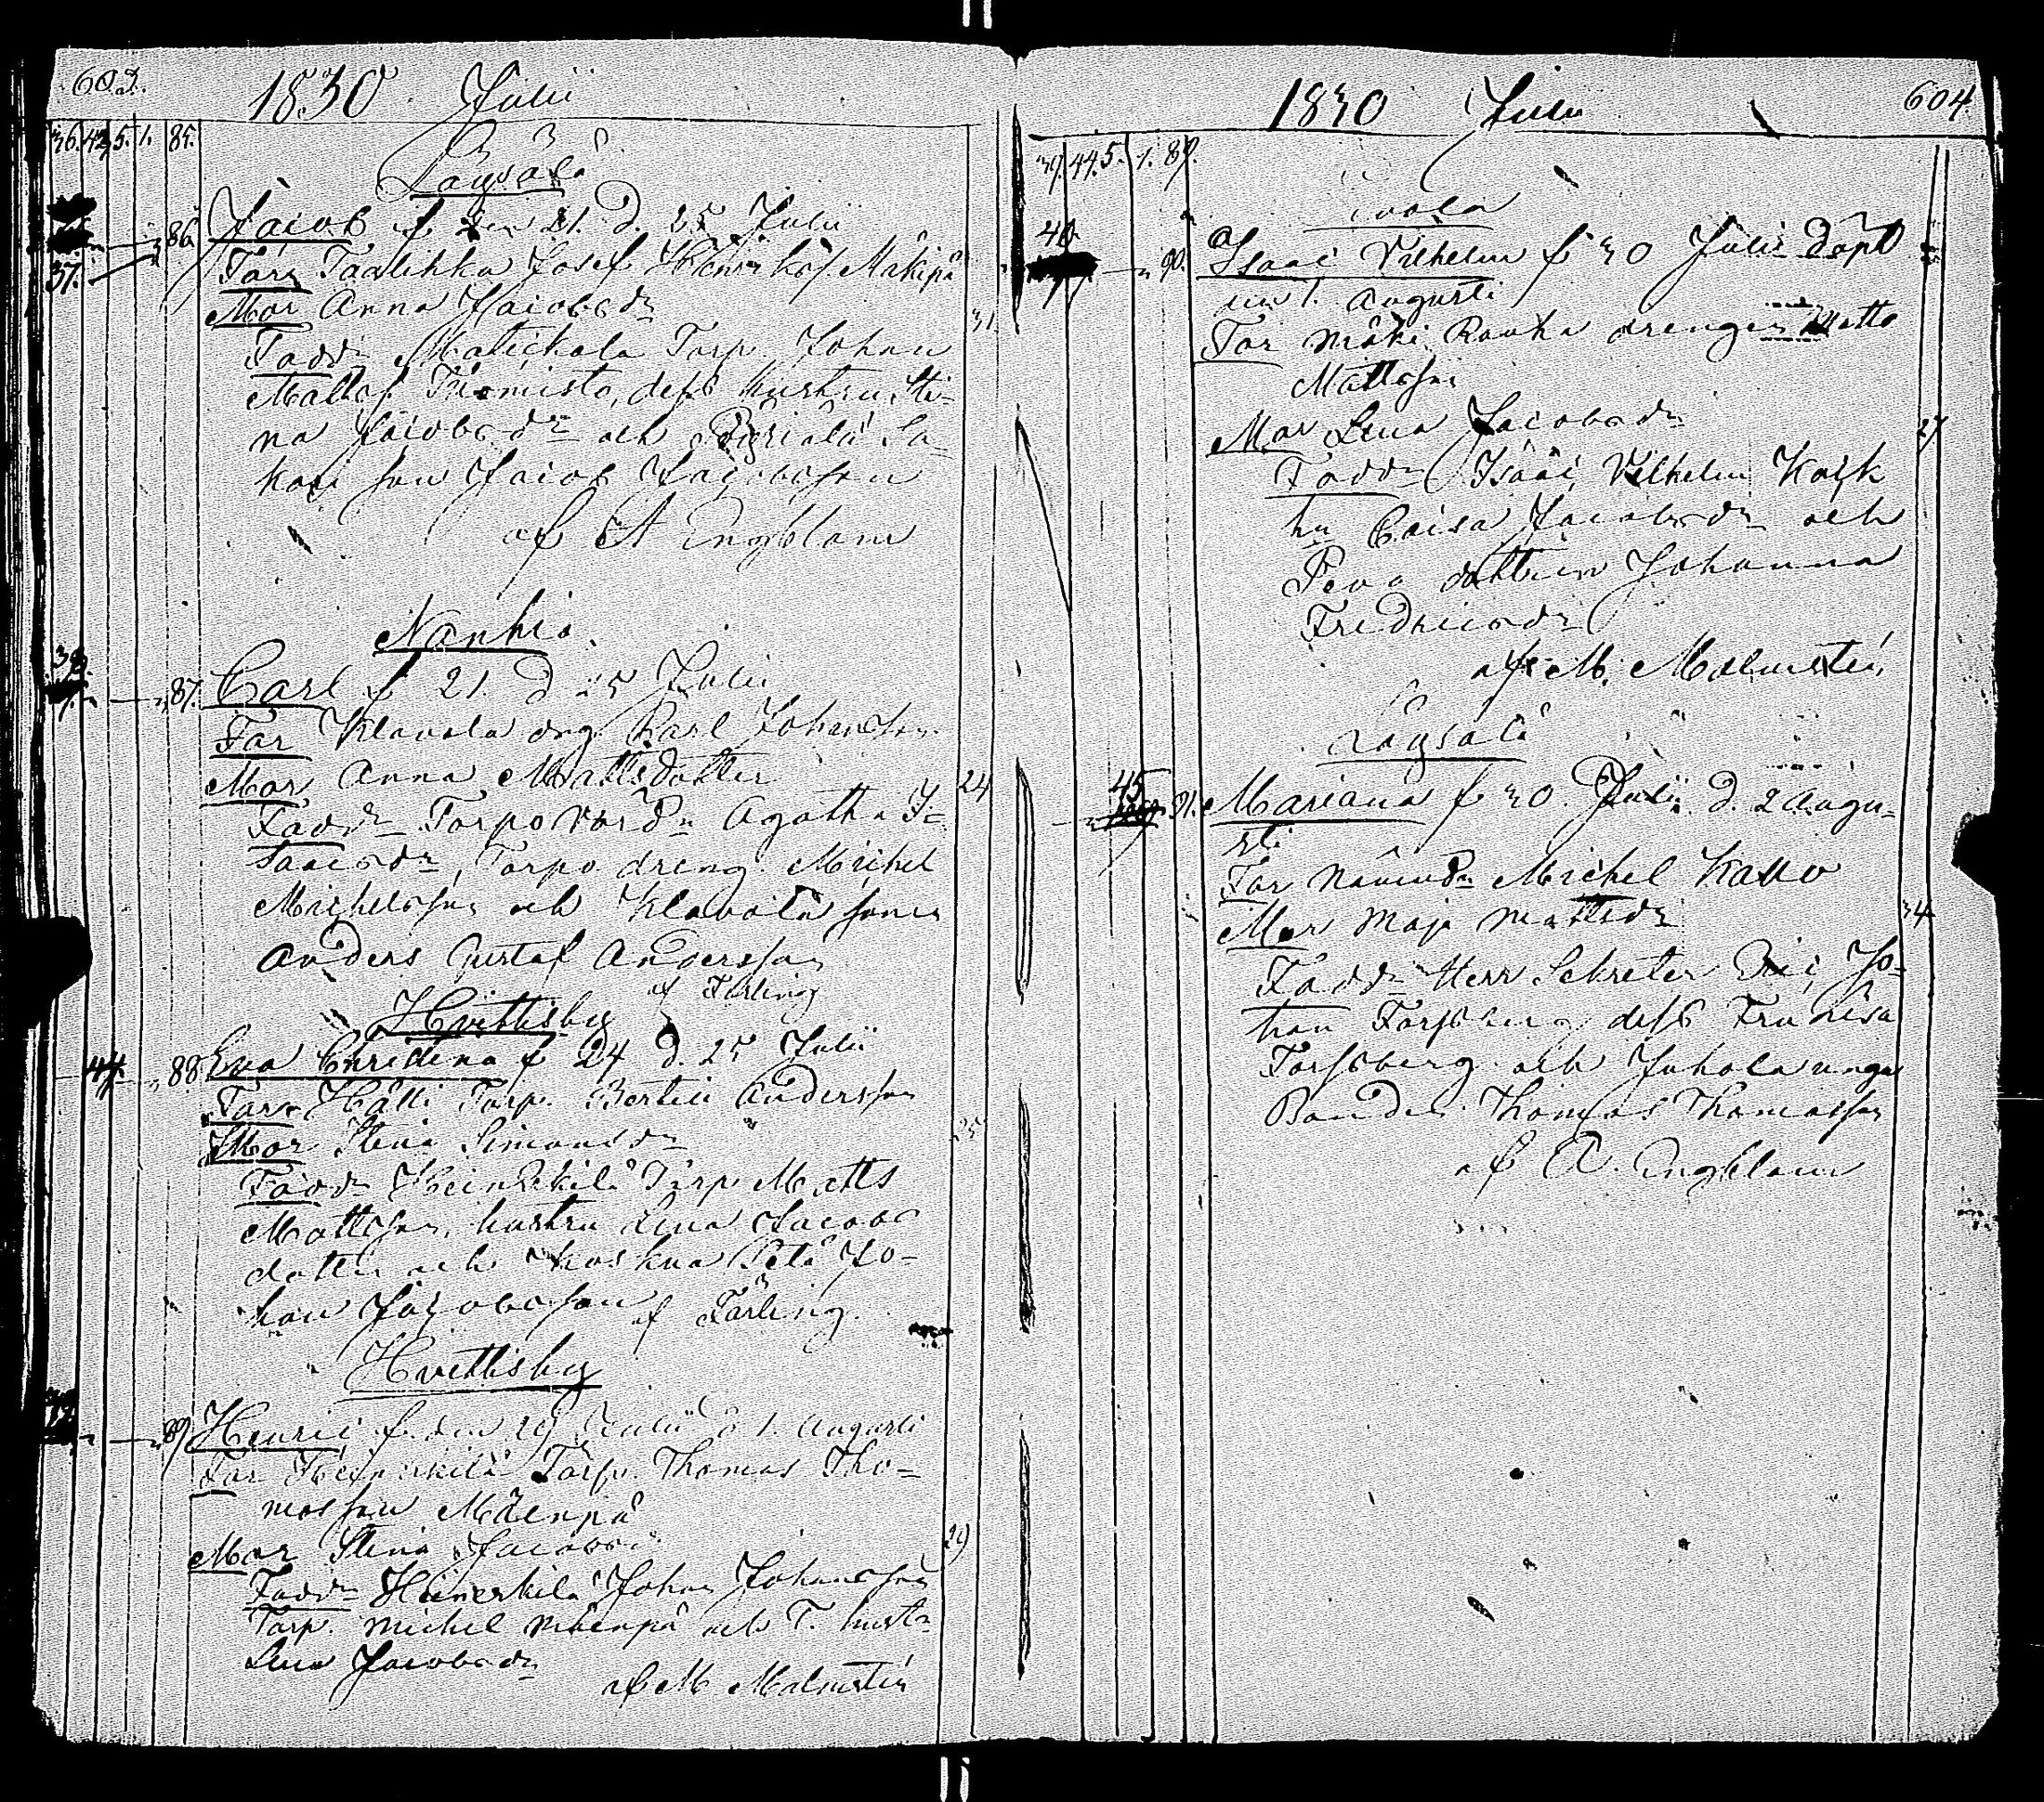 603.
1830 Julii
36. 42. 5. 1. 85.
Löysälä
86. Jacob f den 21. d. 25 Julii
37. Far Taalikka Josef Henrikss. Mäkipä
Mor Anna Jacobsdr
31.
Faddr Matickala Torp. Johan
Mattss. Tuomisto, dess hustru Sti-
na Jacobsdr och Sa-
kari son Jacob Jacobsson
af A Engblom
Nanhia
38.
87. Carl f 21. d 25 Julii
Far Klavola drg Karl Johansson
Mor Anna Mattsdotter
24
Faddr Torpo Värdn Agatha I-
saacsdr, Torpo dreng Michel
Michelsson och Klavola sonen
Anders Gustaf Andersson
af Färling
Hvittisby
44. 88 Eva Christina f 24 d. 25 Julii
Far Hälli Torp. Bertill Andersson
Mor Stina Simonsdr
25
Faddr Heinikkilä Torp Matts
Mattsson, hustru Lena Jacobs
dotter och Petä Jo-
han Jacobsson af Färling.
Hvittisby
89 Henric f. den 29 Julii d 1. Augusti
Far Heinikkilä Torp. Thomas Tho-
masson Mäenpä
Mor Stina Jacobsdr
29
Faddr Heinikkilä Johan Johansson
Torp. Michel Mäenpä och T. hustr
Lena Jacobsdr
af M Malmstén
1830 Julii
604
39. 44. 5. 1. 89.
40. 90. Isaac Vilhelm f 30 Julii döpt
den 1. Augusti
Far Mäki Rauka drengen Matts
Mattsson
Mor Lena Jacobsdr
27
Faddr Isaac Vilhelm Kojk
ka Caisa Jacobsdr och
dottren Johanna
Fredricsdr
af M. Malmstén
Löysälä
45
91. Mariana f 30. Julii d. 2 Augu-
sti
Far Nämndn Michel Kallo
Mor Maja Mattsdr
34
Faddr Herr Sekreter Eric Jo-
han Forssberg dess Fru Lisa
Forssberg och Juhola unga
Bonden Thomas Thomasson
af A. Engblom